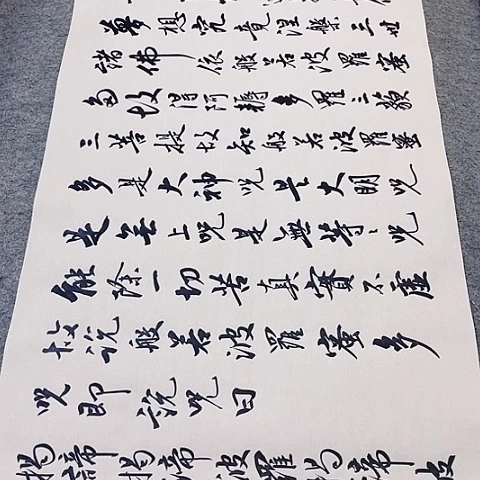 夢想究竟涅槃三世
諸佛依般若波羅蜜
多故得阿耨多羅三藐
三菩提故知般若波羅蜜
多是大神咒是大明咒
是無上咒是無等々咒
能除一切苦真實不虛
故說般若波羅蜜多
咒即說咒曰
揭諦揭諦波羅揭諦波